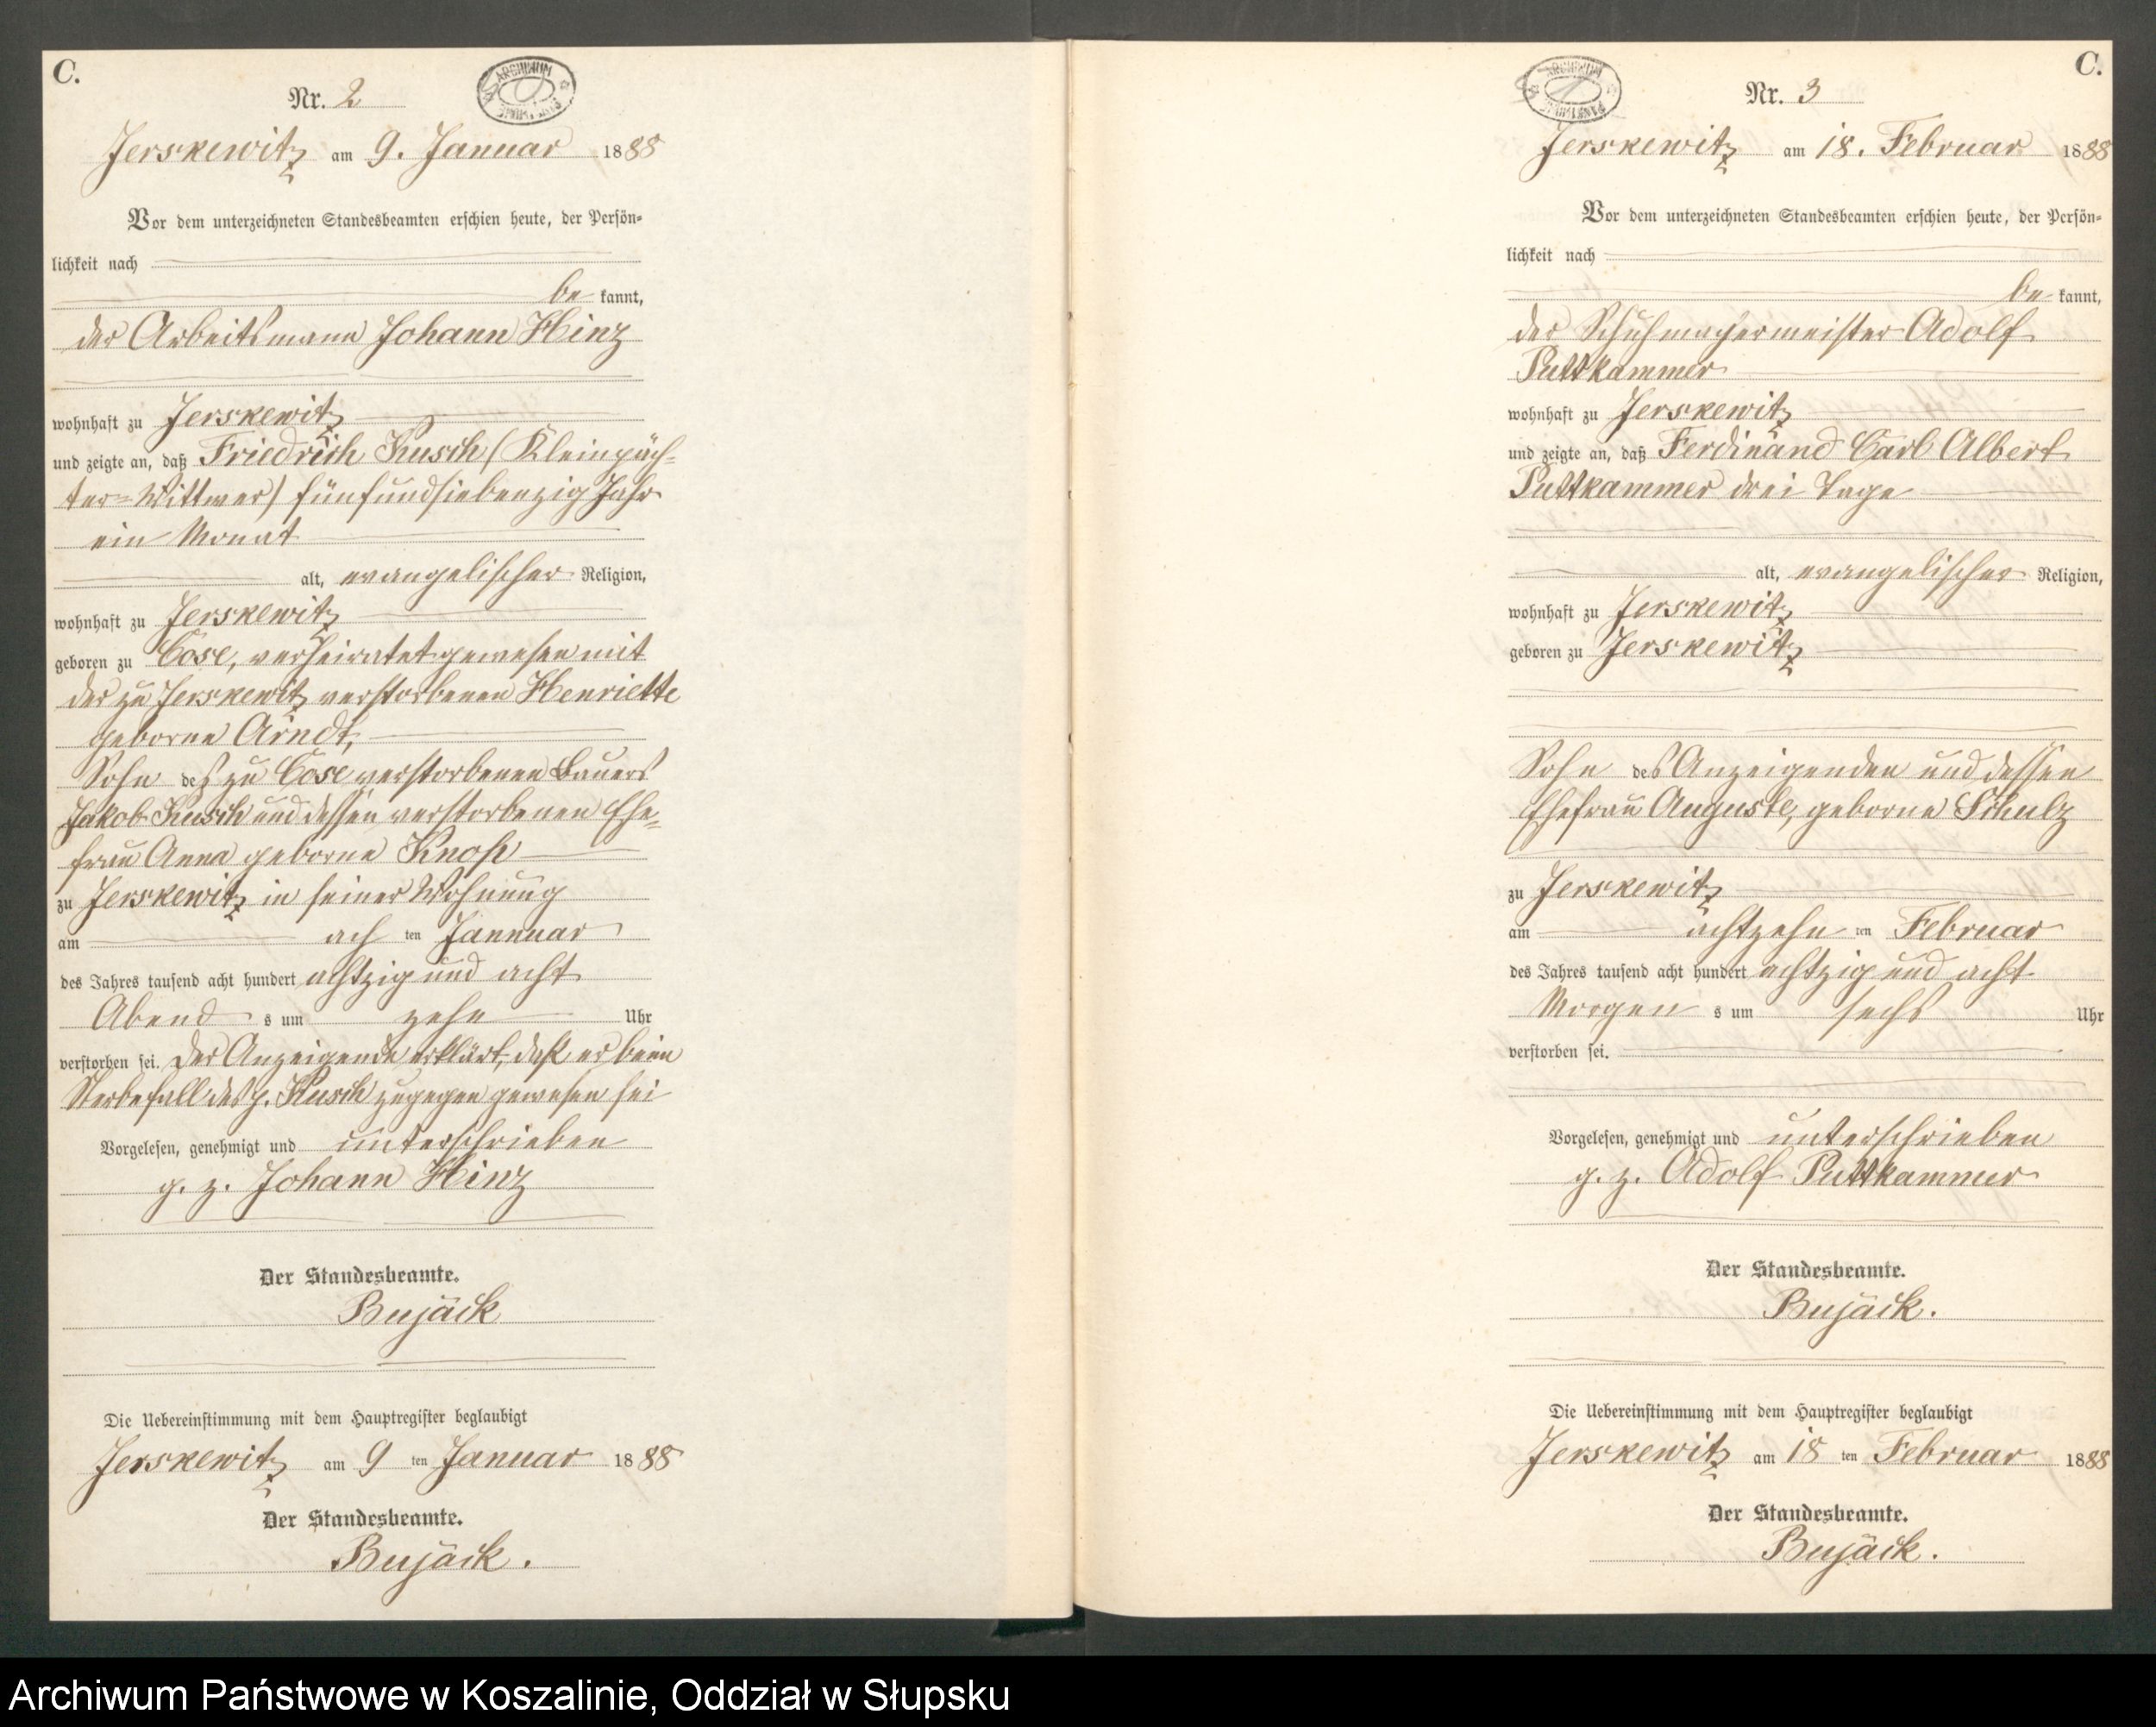 C.
Nr. 2
ARCHIWUM PAŃSTWOWE
Jerskewitz am 9. Januar 1888
Vor dem unterzeichneten Standesbeamten erschien heute, der Persön-
lichkeit nach
be kannt,
der Arbeitsmann Johann Hinz
wohnhaft zu Jerskewitz
und zeigte an, daß Friedrich Kusch (Kleinpäch-
ter-Wittwer) fünfundsiebenzig Jahr
ein Monat
alt, evangelischer Religion,
wohnhaft zu Jerskewitz
geboren zu Cose, verheiratet gewesen mit
der zu Jerskewitz verstorbenen Henriette
geborne Arndt,
Sohn des zu Cose verstorbenen Bauers
Jakob Kusch und dessen verstorbenen Ehe-
frau Anna geborne Knop
zu Jerskewitz in seiner Wohnung
am ach ten Jannuar
des Jahres tausend acht hundert achtzig und acht
Abend s um zehn Uhr
verstorben sei. Der Anzeigende erklärt, daß er beim
Sterbefall des p. Kusch zugegen gewesen sei
Vorgelesen, genehmigt und unterschrieben
g. z. Johann Hinz
Der Standesbeamte.
Bujäck
Die Uebereinstimmung mit dem Hauptregister beglaubigt
Jerskewitz am 9 ten Januar 1888
Der Standesbeamte.
Bujäck.
C.
Nr. 3
ARCHIWUM PAŃSTWOWE
Jerskewitz am 18. Februar 1888
Vor dem unterzeichneten Standesbeamten erschien heute, der Persön-
lichkeit nach
be kannt,
der Schuhmachermeister Adolf
Puttkammer
wohnhaft zu Jerskewitz
und zeigte an, daß Ferdinand Carl Albert
Puttkammer drei Tage
alt, evangelischer Religion,
wohnhaft zu Jerskewitz
geboren zu Jerskewitz
Sohn des Anzeigenden und dessen
Ehefrau Auguste, geborne Schulz
zu Jerskewitz
am achtzehn ten Februar
des Jahres tausend acht hundert achtzig und acht
Morgen s um sechs Uhr
verstorben sei.
Vorgelesen, genehmigt und unterschrieben
g. z. Adolf Puttkammer
Der Standesbeamte.
Bujäck.
Die Uebereinstimmung mit dem Hauptregister beglaubigt
Jerskewitz am 18 ten Februar 1888
Der Standesbeamte.
Bujäck.
Archiwum Państwowe w Koszalinie, Oddział w Słupsku